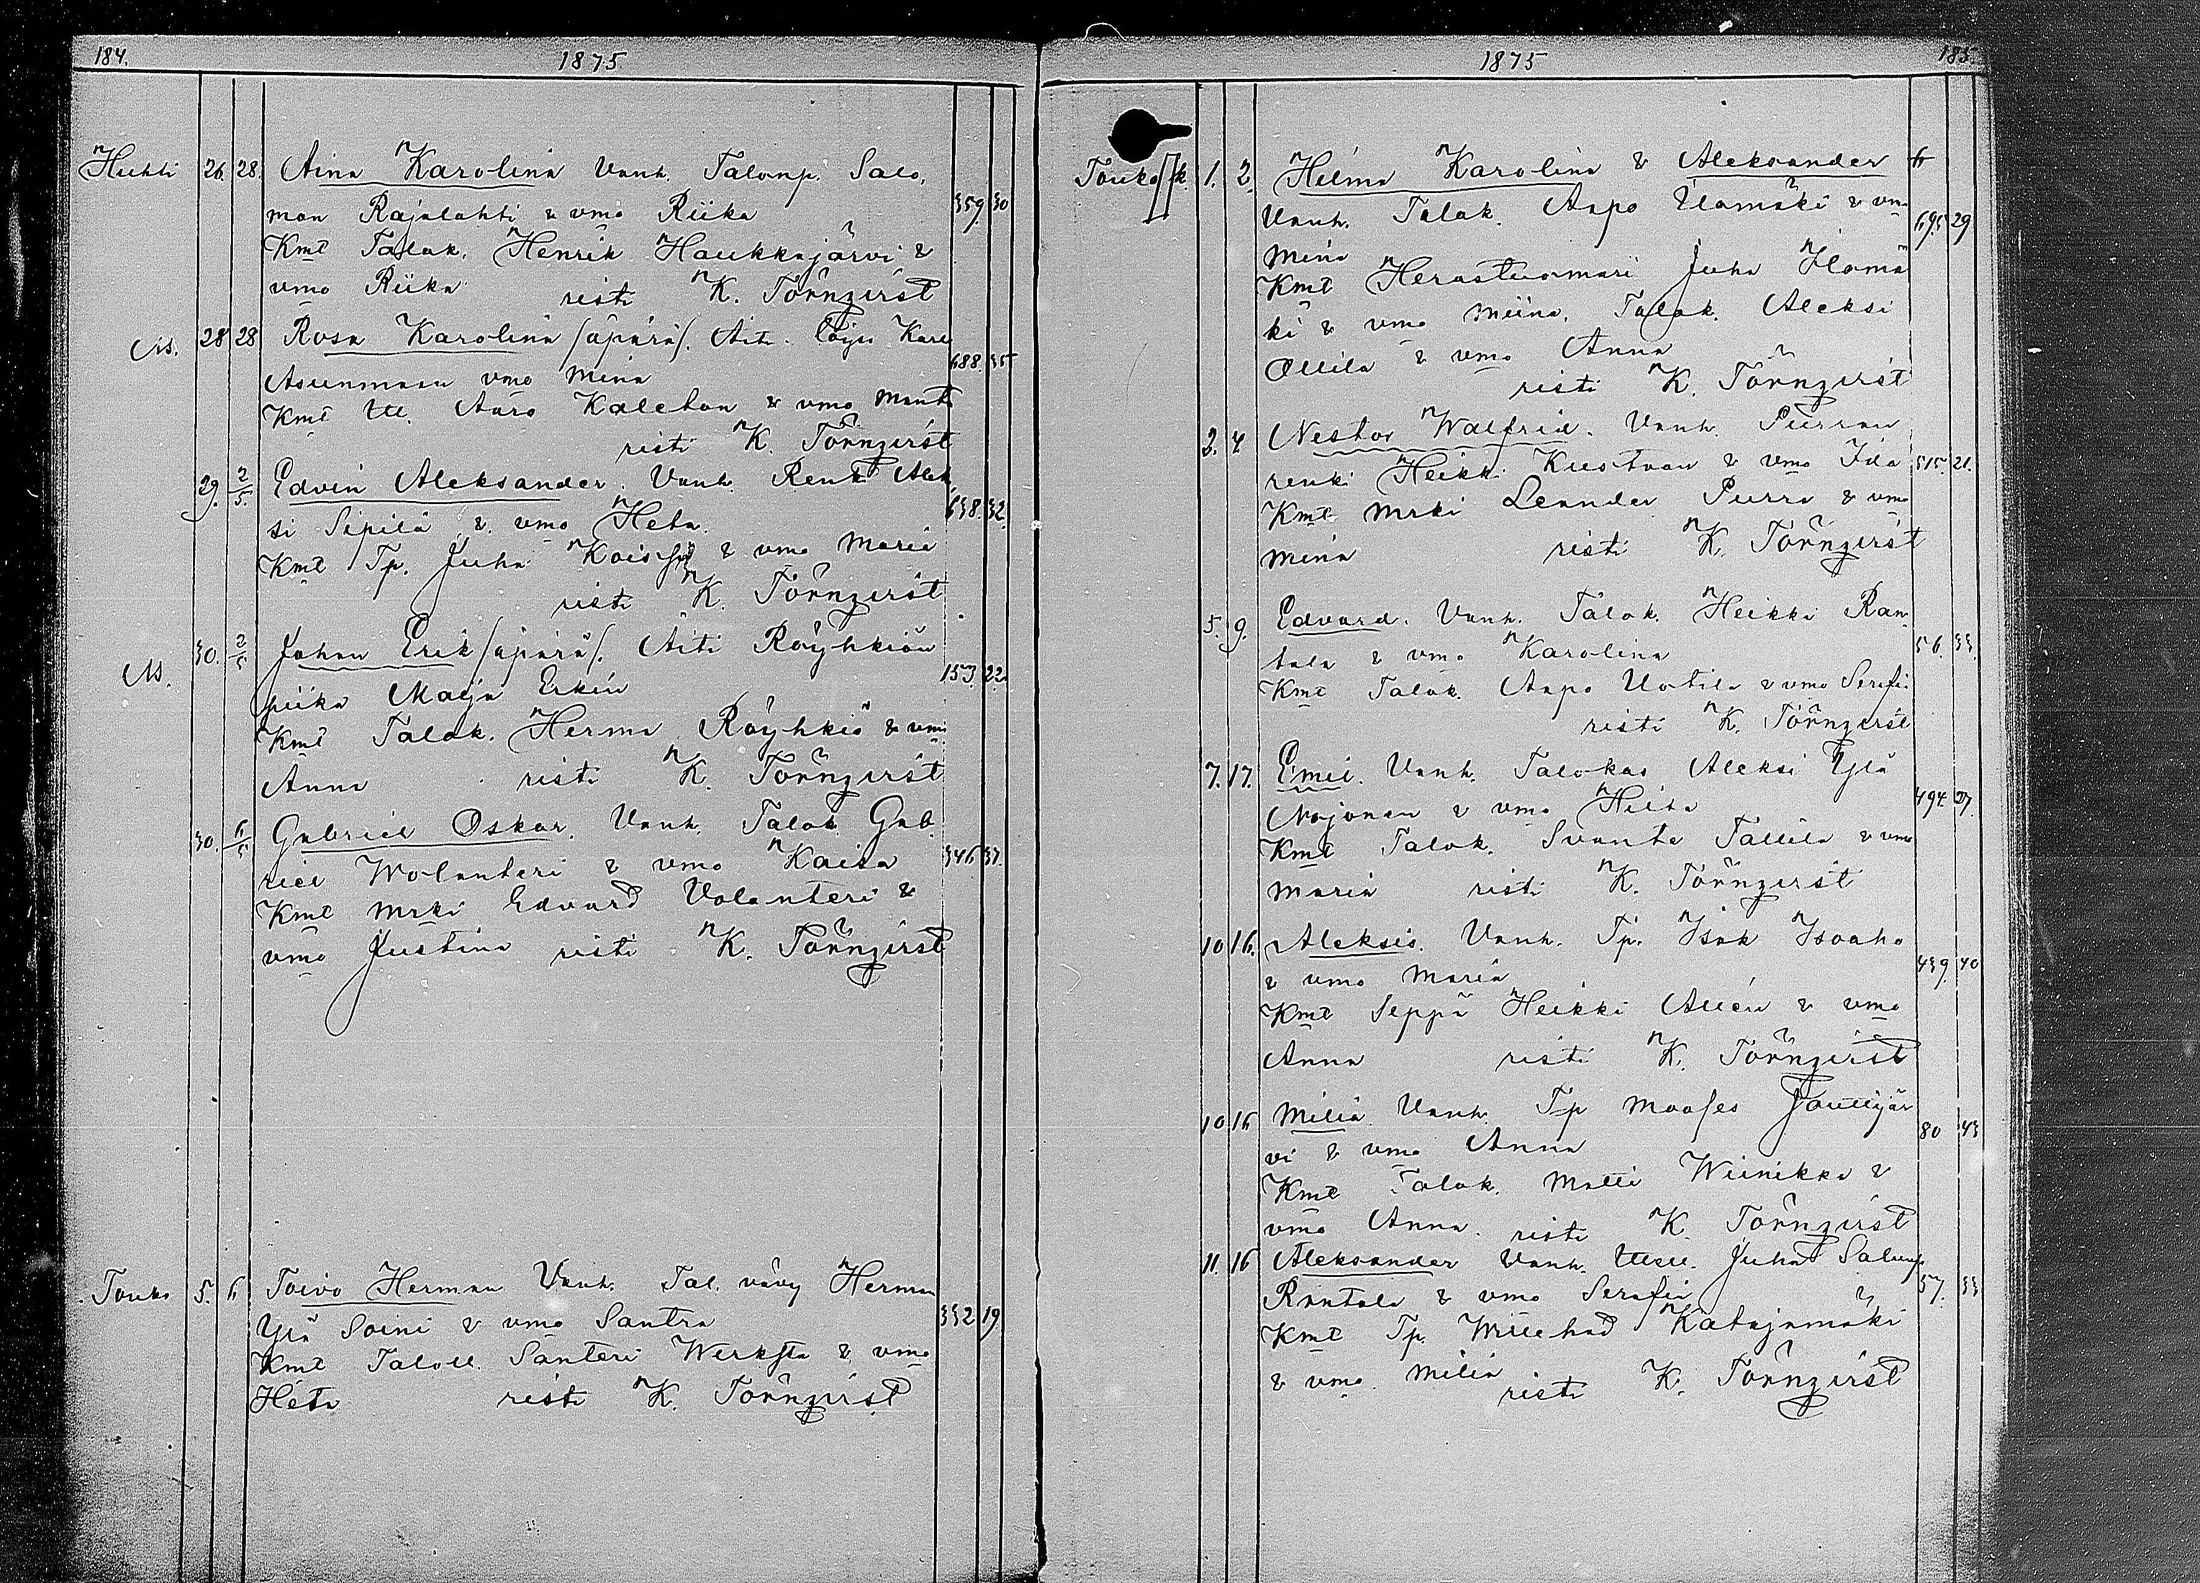 184.
1875
Huhti 26. 28. Aina Karolina Vanh. Talonp. Salo,
mon Rajalahti & vmo Riika 359. 30
Kmt Talok. Henrik Haukkajärvi &
vmo Riika risti K. Törnqvist
As. 28 28 Rosa Karolina /äpärä/. Äiti
Asunmaan vmo Mina 688. 35
Kmt Itl. Aaro Kaleton & vmo Manta
risti K. Törnqvist
29. 2/5. Edvin Aleksander. Vanh. Renk Alek
si Sipilä & vmo Heta. 638. 32.
Kmt Tp. Juha & vmo Maria
risti K. Törnqvist
As. 30. 2/5 Johan Erik /äpärä/. Äiti Röyhkiön
piika Maija Erkin 153. 22.
Kmt Talok. Herma Röyhkiö & vmo
Anna risti K. Törnqvist
30. 6/5 Gabriel Oskar. Vanh. Talok. Gab.
riel Wolanteri & vmo Kaisa 346 37.
Kmt Mrki Edvard Volanteri &
vmo Justina risti K. Törnqvist
Touko 5. 6 Toivo Herman Vanh. Tal. vävy Herman
Ylä Soini & vmo Santra 332 19
Kmt Taloll. Santeri & vmo
Heta risti K. Törnqvist
1875
185.
Toukok. 1. 2. Hilma Karolina & Aleksander
Vanh. Talok. Aapo Ilomäki & vmo 695 29
Mina
Kmt Herastuomari Juha Ilomä
ki & vmo Miina, Talok. Aleksi
Ollila & vmo Anna
risti K. Törnqvist
2. 4 Nestor Walfrid. Vanh. Purran
renki Heikki Kustvan & vmo Ida 515. 21.
Kmt Mrki Leander Purra & vmo
Mina risti K. Törnqvist
5. 9. Edvard. Vanh. Talok. Heikki Ran
tala & vmo Karolina 56. 33.
Kmt Talok. Aapo Uotila & vmo Serafia
risti K. Törnqvist
7. 17. Emil. Vanh. Talokas Aleksi Ylä
Nojonen & vmo Hilta 494 27.
Kmt Talok. Svante Tallila & vmo
Maria risti K. Törnqvist
10 16. Aleksis. Vanh. Tp. Isak Isoaho
& vmo Maria 439. 40
Kmt Seppä Heikki Allén & vmo
Anna risti K. Törnqvist
10 16 Milia Vanh. Tp Mooses Joutijär
vi & vmo Anna 80 43
Kmt Talok. Matti Wiinikka &
vmo Anna. risti K. Törnqvist
11. 16 Aleksander Vanh. Juha
Rantala & vmo Serafia 57. 33
Kmt Tp. Katajamäki
& vmo Milia risti K. Törnqvist